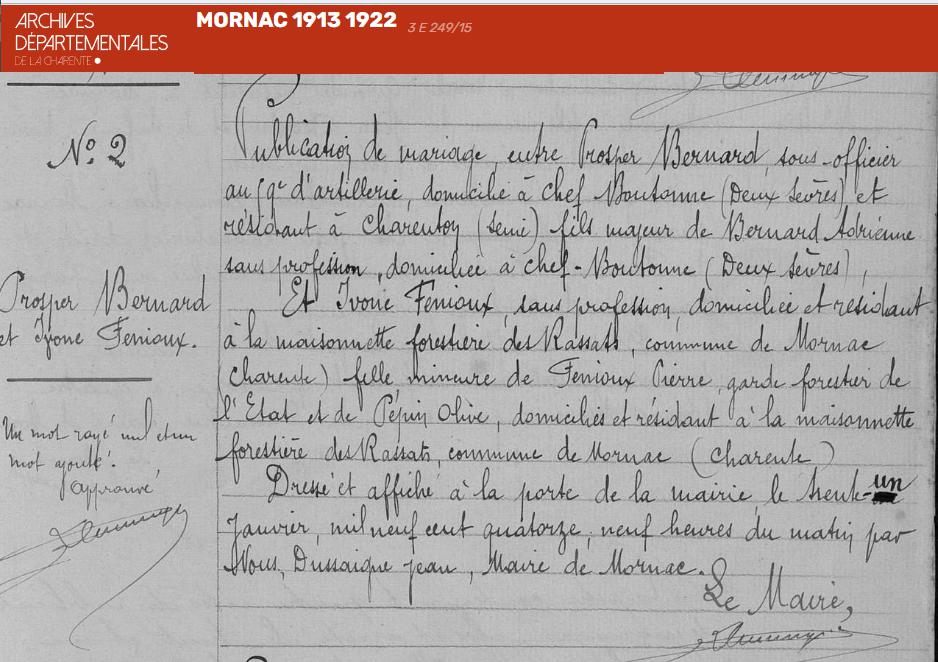 ARCHIVES
DÉPARTEMENTALES
DE LA CHARENTE
MORNAC 1913 1922 3 E 249/15
N° 2
Prosper Bernard
et Ivone Fenioux.
Un mot rayé nul et un
mot ajouté.
approuvé
Publication de mariage, entre Prosper Bernard, sous-officier
au 9e d'artillerie, domicilié à Chef Boutonne (Deux Sèvres) et
résidant à Charenton (Seine) fils majeur de Bernard Adrienne
sans profession, domiciliée à Chef-Boutonne (Deux Sèvres),
Et Ivone Fenioux, sans profession, domiciliée et résidant
à la maisonnette forestière des Rassats, commune de Mornac
(Charente) fille mineure de Fenioux Pierre, garde forestier de
l'Etat et de Pépin Olive, domiciliés et résidant à la maisonnette
forestière des Rassats, commune de Mornac (Charente)
Dressé et affiché à la porte de la mairie le trente-un
Janvier, mil neuf cent quatorze, neuf heures du matin par
Nous, Dussaigne Jean, Maire de Mornac.
Le Maire,